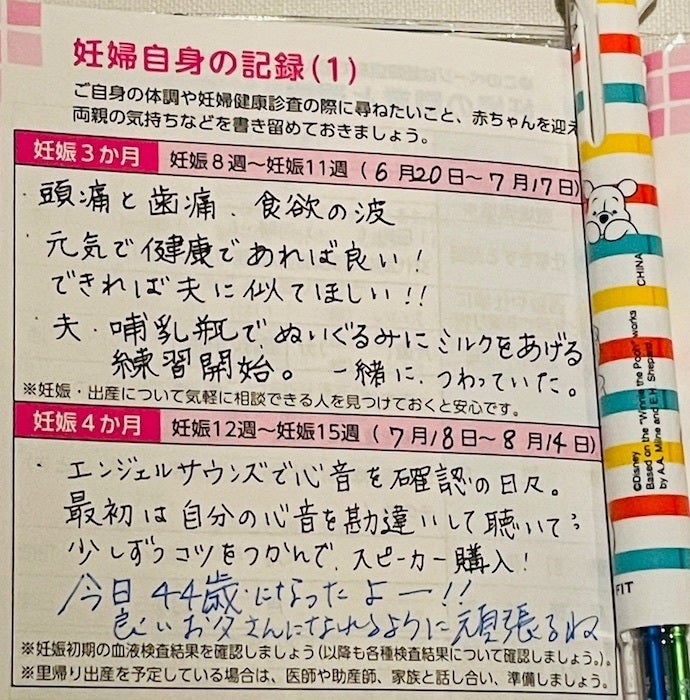 妊婦自身の記録(1)
ご自身の体調や妊婦健康診査の際に尋ねたいこと、赤ちゃんを迎え
両親の気持ちなどを書き留めておきましょう。
妊娠3か月 妊娠8週～妊娠11週 (6月20日～7月17日)
・頭痛と歯痛、食欲の波
・元気で健康であれば良い!
できれば夫に似てほしい!!
・夫・哺乳瓶で、ぬいぐるみにミルクをあげる
練習開始。一緒に、つわっていた。
※妊娠・出産について気軽に相談できる人を見つけておくと安心です。
妊娠4か月 妊娠12週～妊娠15週 (7月18日～8月14日)
・エンジェルサウンズで心音を確認の日々。
最初は自分の心音を勘違いして聴いてう
少しずつコツをつかんで、スピーカー購入!
今日44歳になったよー!!
良いお父さんになれるように頑張るね
※妊娠初期の血液検査結果を確認しましょう(以降も各種検査結果について確認しましょう。)。
※里帰り出産を予定している場合は、医師や助産師、家族と話し合い、準備しましょう。
CHINA
©Disney
Based on the "Winnie the Pooh" works
by A.A. Milne and E.H. Shepard
FIT